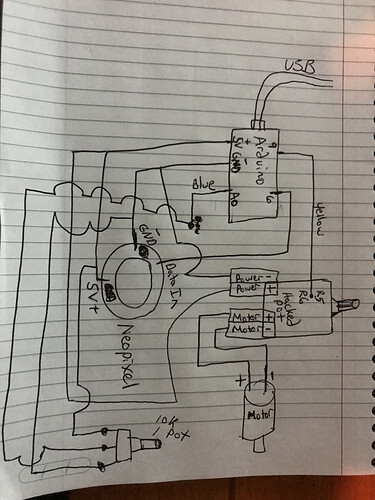 USB
Arduino
9
5V +
GND -
A0
6
Blue
Yellow
GND -
Data In
5V +
Neopixel
Power -
Power +
Motor +
Motor -
Hacked
Pot
R5
Motor
+
-
10K
Pot